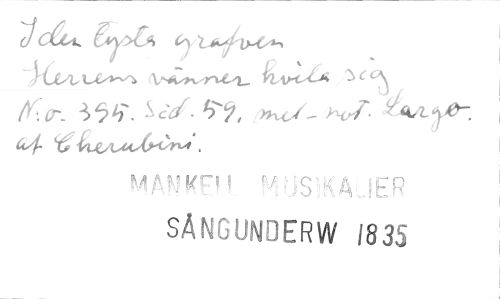 I den tysta grafven
Herrens vänner hvila sig
N:o. 395. Sid. 59. mel-not. Largo.
af Cherubini.
MANKELL MUSIKALIER
SÅNGUNDERW 1835